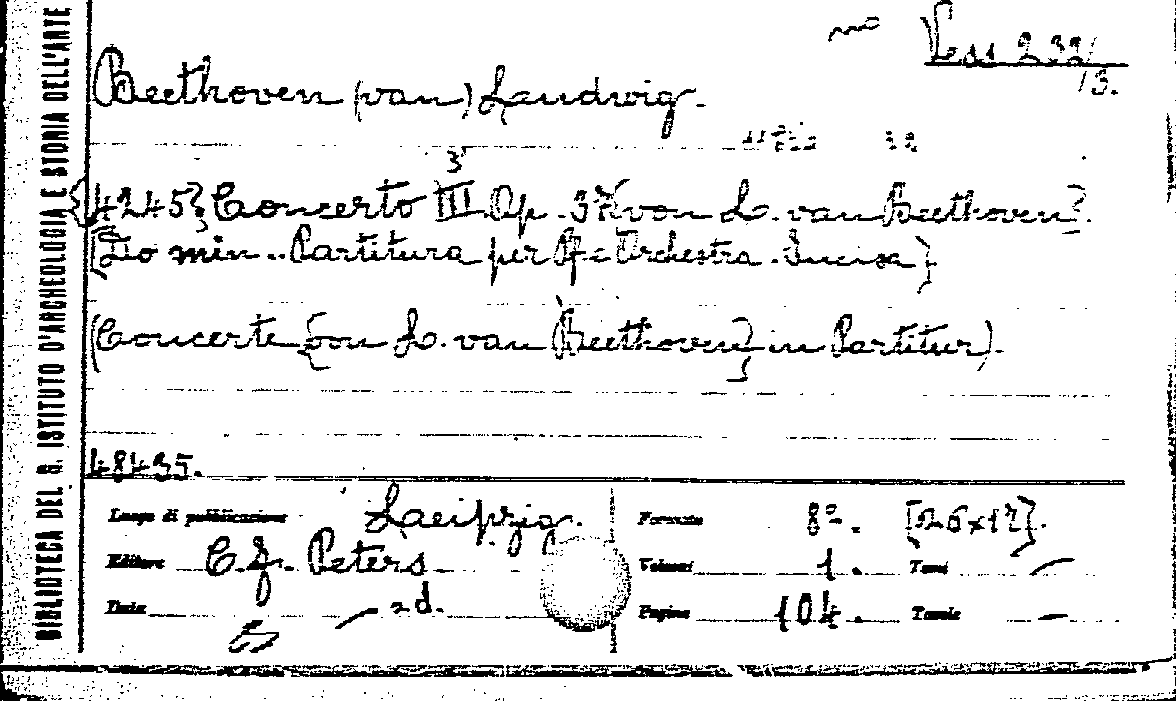 BIBLIOTECA DEL R. ISTITUTO D'ARCHEOLOGIA E STORIA DELL'ARTE
Vess 232/
13.
Beethoven (van) Laudwig.
3
[4245] Concerto III. Op. 37 [von L. van Beethoven].
[Do min.. Partitura per Pf e Orchestra. Incisa]
(Concerte [von L. van Beethoven] in Partitur).
48435.
Luogo di pubblicazione Laeipzig.
Formato 8º. [26x17].
Editore C. F. Peters.
Volumi 1. Tomi —
Data — s d.
Pagine 104. Tavole —